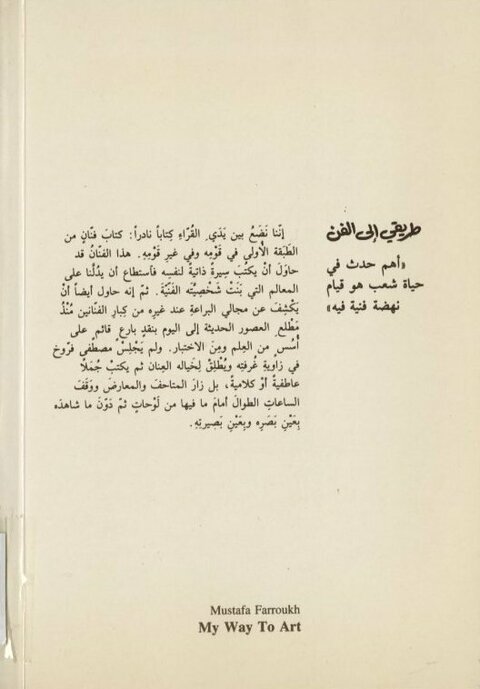 طريقي إلى الفن
«أهم حدث في
حياة شعب هو قيام
نهضة فنية فيه»
إنّنا نَضَعُ بين يَدَيِ القُرّاءِ كِتاباً نادراً: كتابَ فنّانٍ من
الطَبَقة الأُولى في قَوْمِه وفي غيرِ قَوْمِهِ. هذا الفنّانُ قد
حاوَلَ أنْ يكتُبَ سِيرةً ذاتيةً لنفسِه فاستطاع أن يدُلَّنا على
المعالم التي بَنَتْ شخصيّتَه الفنّيّةَ. ثمّ إنه حاول أيضاً أنْ
يَكْشِفَ عن مجالي البراعةِ عند غيرِه من كِبارِ الفنّانين مُنْذُ
مَطْلَعِ العصور الحديثة إلى اليوم بنقدٍ بارعٍ قائمٍ على
أُسُسٍ من العِلم ومِنَ الاختبار. ولم يَجلِسْ مصطفى فرّوخ
في زاويةِ غُرفتِه ويُطْلِقْ لخيالِه العِنان ثم يكتبْ جُمَلًا
عاطفيةً أوْ كلاميةً، بل زارَ المتاحفَ والمعارضَ ووَقَفَ
الساعاتِ الطوالَ أمامَ ما فيها من لَوْحاتٍ ثمّ دَوّنَ ما شاهَده
بِعَيْنِ بَصَرِه وبِعَيْنِ بَصيرتِهِ.
Mustafa Farroukh
My Way To Art